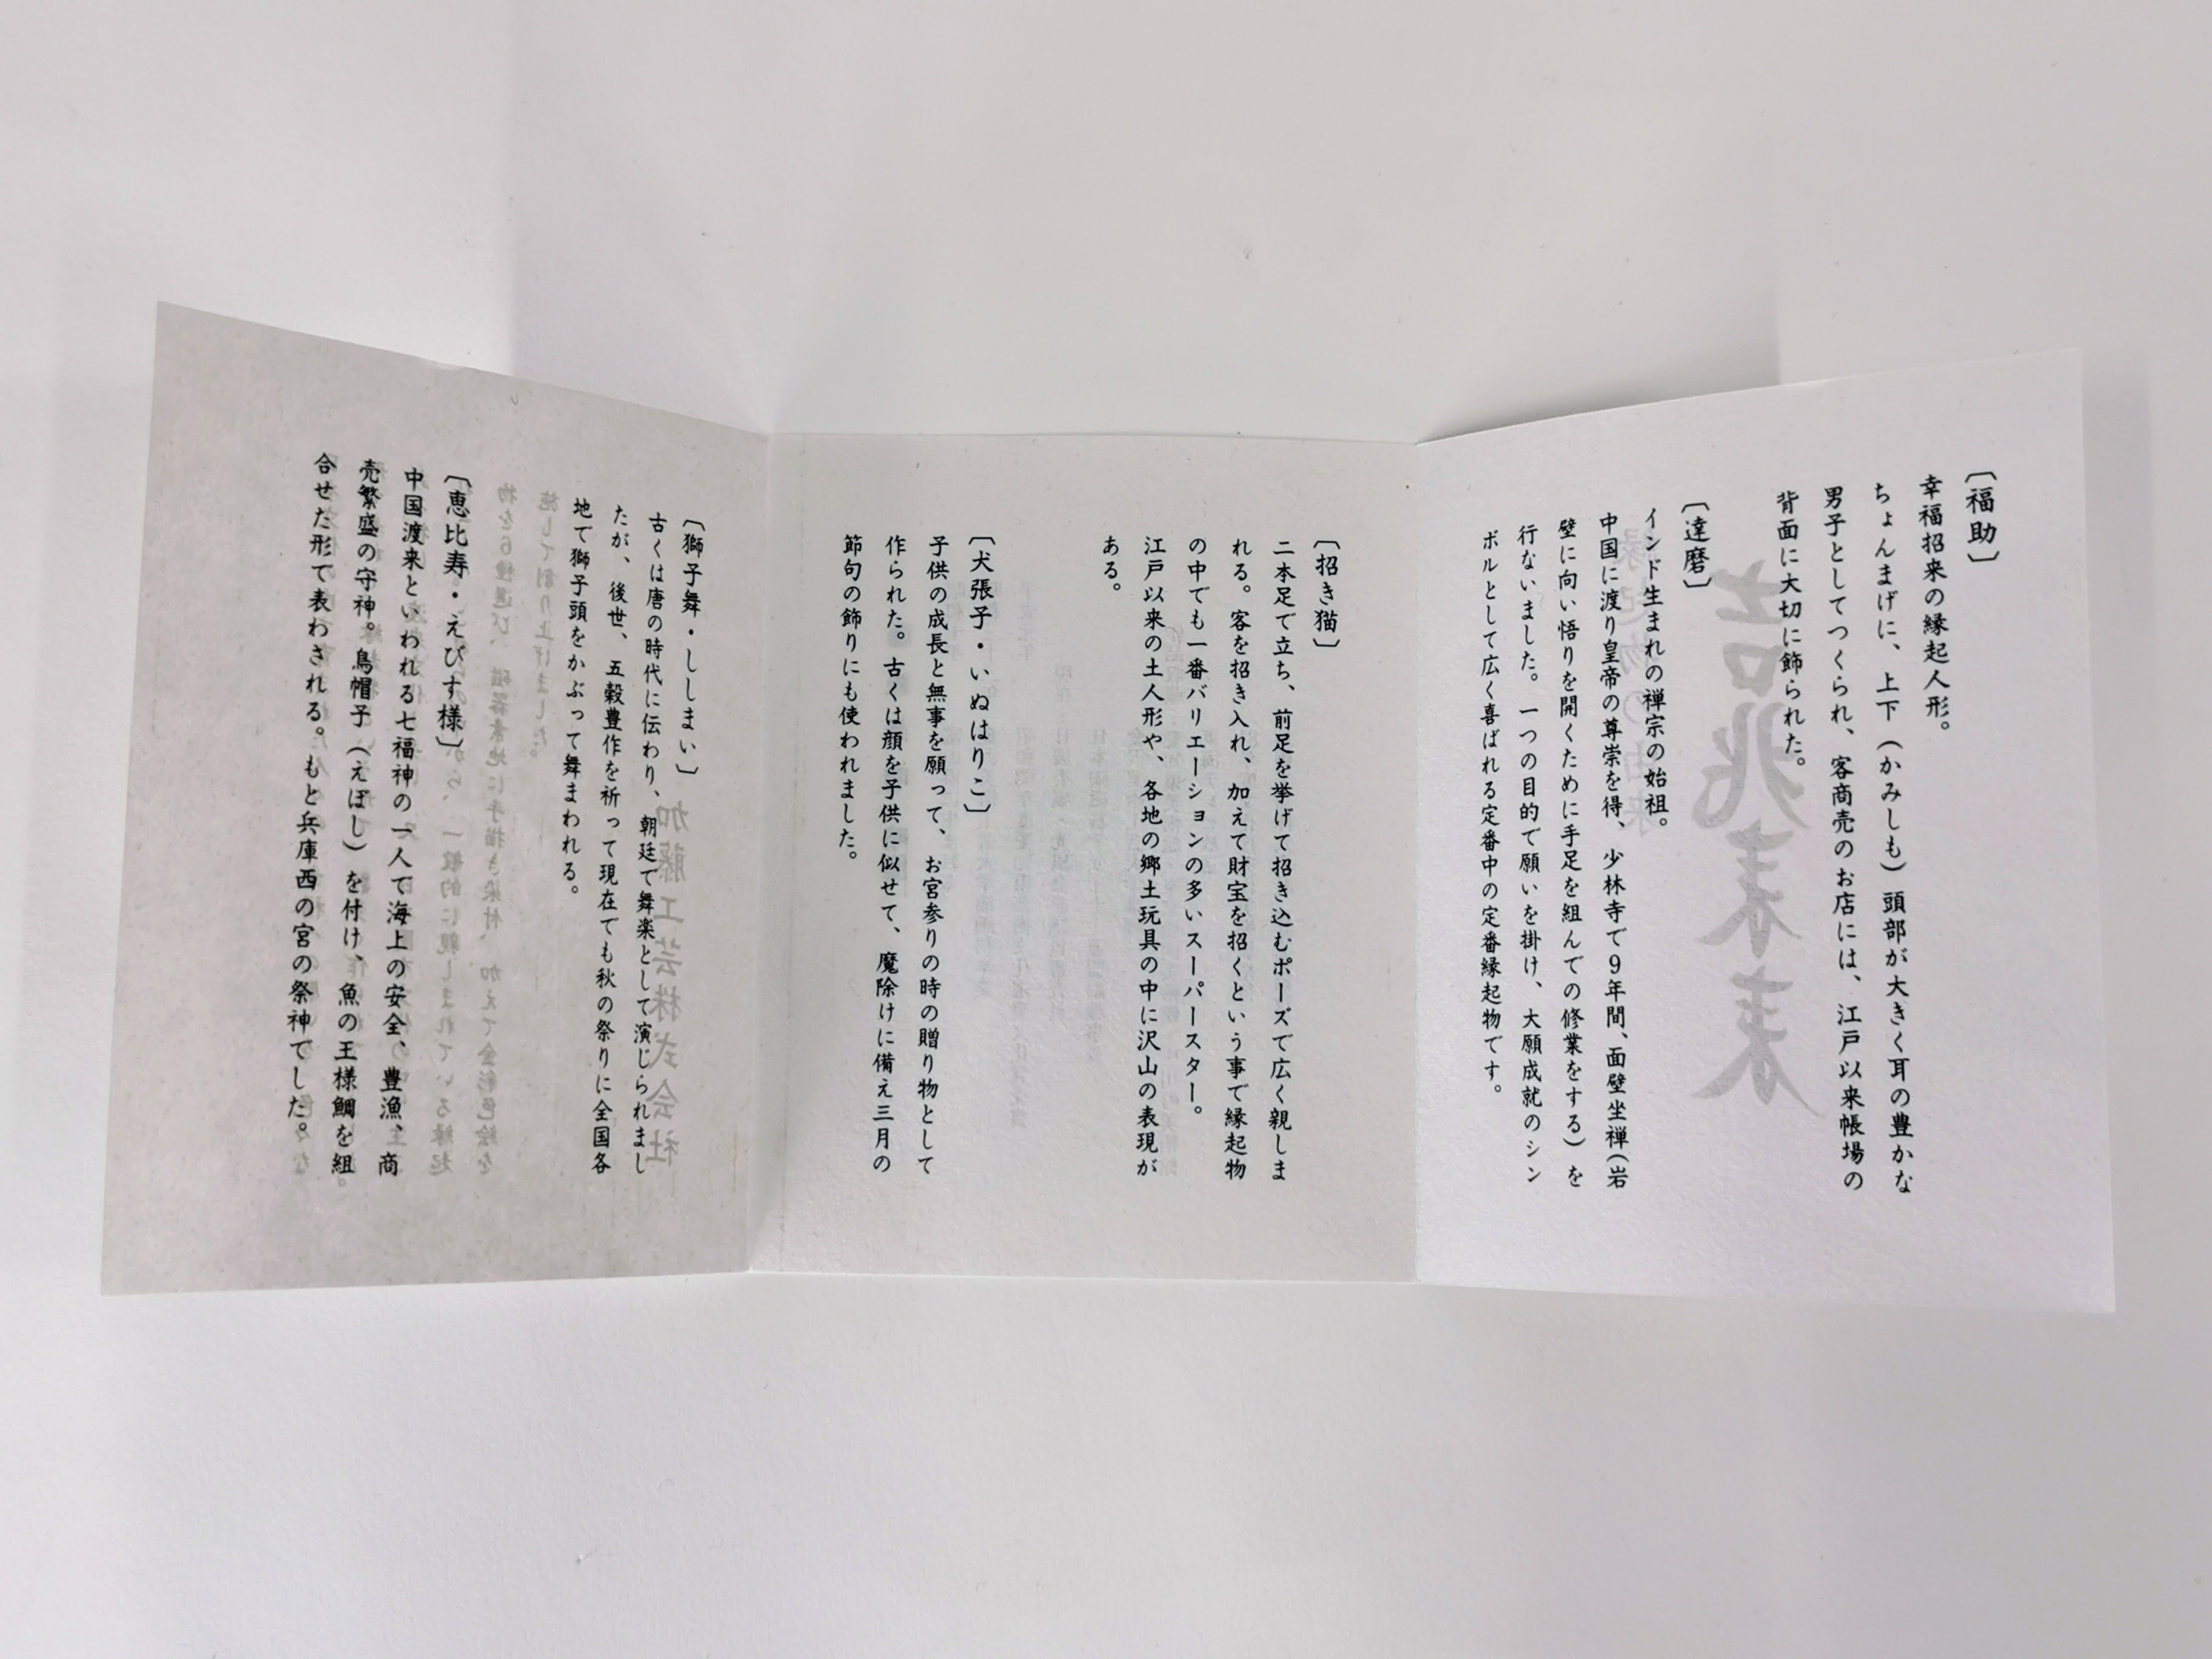 〔福助〕
幸福招来の縁起人形。
ちょんまげに、上下（かみしも）頭部が大きく耳の豊かな
男子としてつくられ、客商売のお店には、江戸以来帳場の
背面に大切に飾られた。
〔達磨〕
インド生まれの禅宗の始祖。
中国に渡り皇帝の尊崇を得、少林寺で９年間、面壁坐禅（岩
壁に向い悟りを開くために手足を組んでの修業をする）を
行ないました。一つの目的で願いを掛け、大願成就のシン
ボルとして広く喜ばれる定番中の定番縁起物です。
〔招き猫〕
二本足で立ち、前足を挙げて招き込むポーズで広く親しま
れる。客を招き入れ、加えて財宝を招くという事で縁起物
の中でも一番バリエーションの多いスーパースター。
江戸以来の土人形や、各地の郷土玩具の中に沢山の表現が
ある。
〔犬張子・いぬはりこ〕
子供の成長と無事を願って、お宮参りの時の贈り物として
作られた。古くは顔を子供に似せて、魔除けに備え三月の
節句の飾りにも使われました。
〔獅子舞・ししまい〕
古くは唐の時代に伝わり、朝廷で舞楽として演じられまし
たが、後世、五穀豊作を祈って現在でも秋の祭りに全国各
地で獅子頭をかぶって舞まわれる。
〔恵比寿・えびす様〕
中国渡来といわれる七福神の一人で海上の安全、豊漁、商
売繁盛の守神。鳥帽子（えぼし）を付け、魚の王様鯛を組
合せた形て表わされる。もと兵庫西の宮の祭神でした。
吉兆末末
縁起物の由来
加藤工芸株式会社